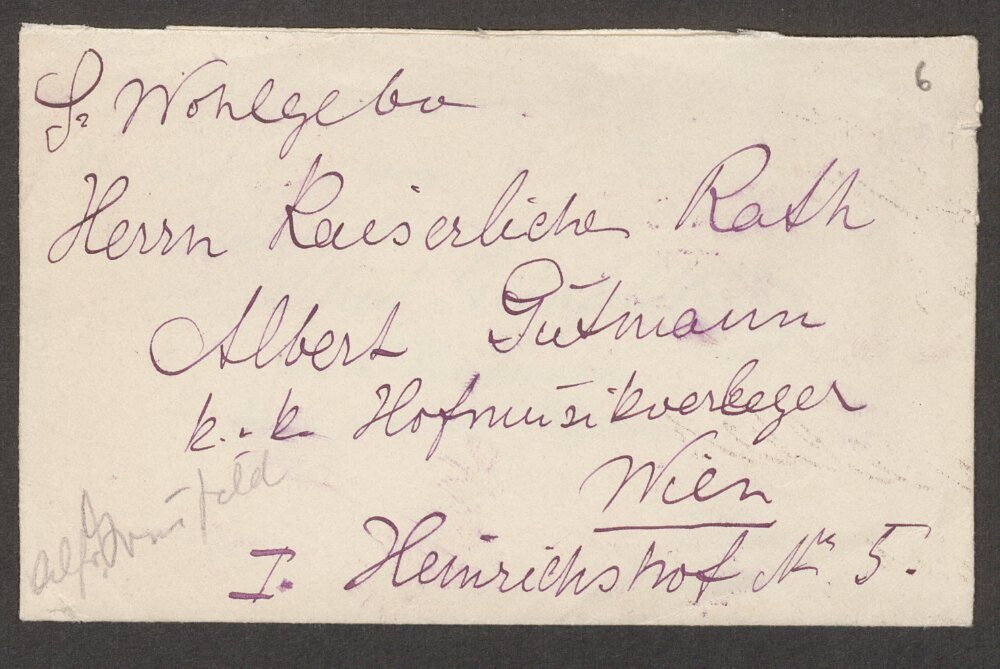 6
Sr Wohlgebo
Herrn Kaiserlicher Rath
Albert Gutmann
k. k. Hofmusikverleger
Wien
Alf. Grünfeld
I. Heinrichshof Nr 5.